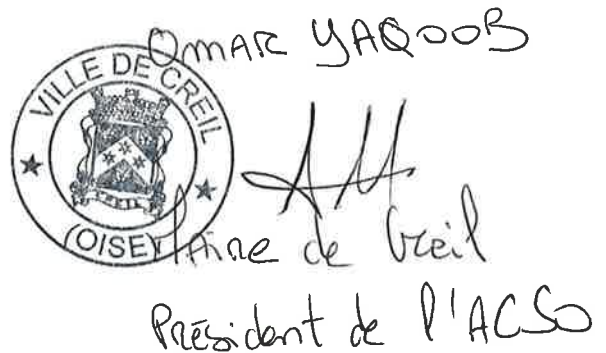 OMAR YAQOOB
VILLE DE CREIL
CREIL
(OISE)
Maire de Creil
Président de l'ACSO